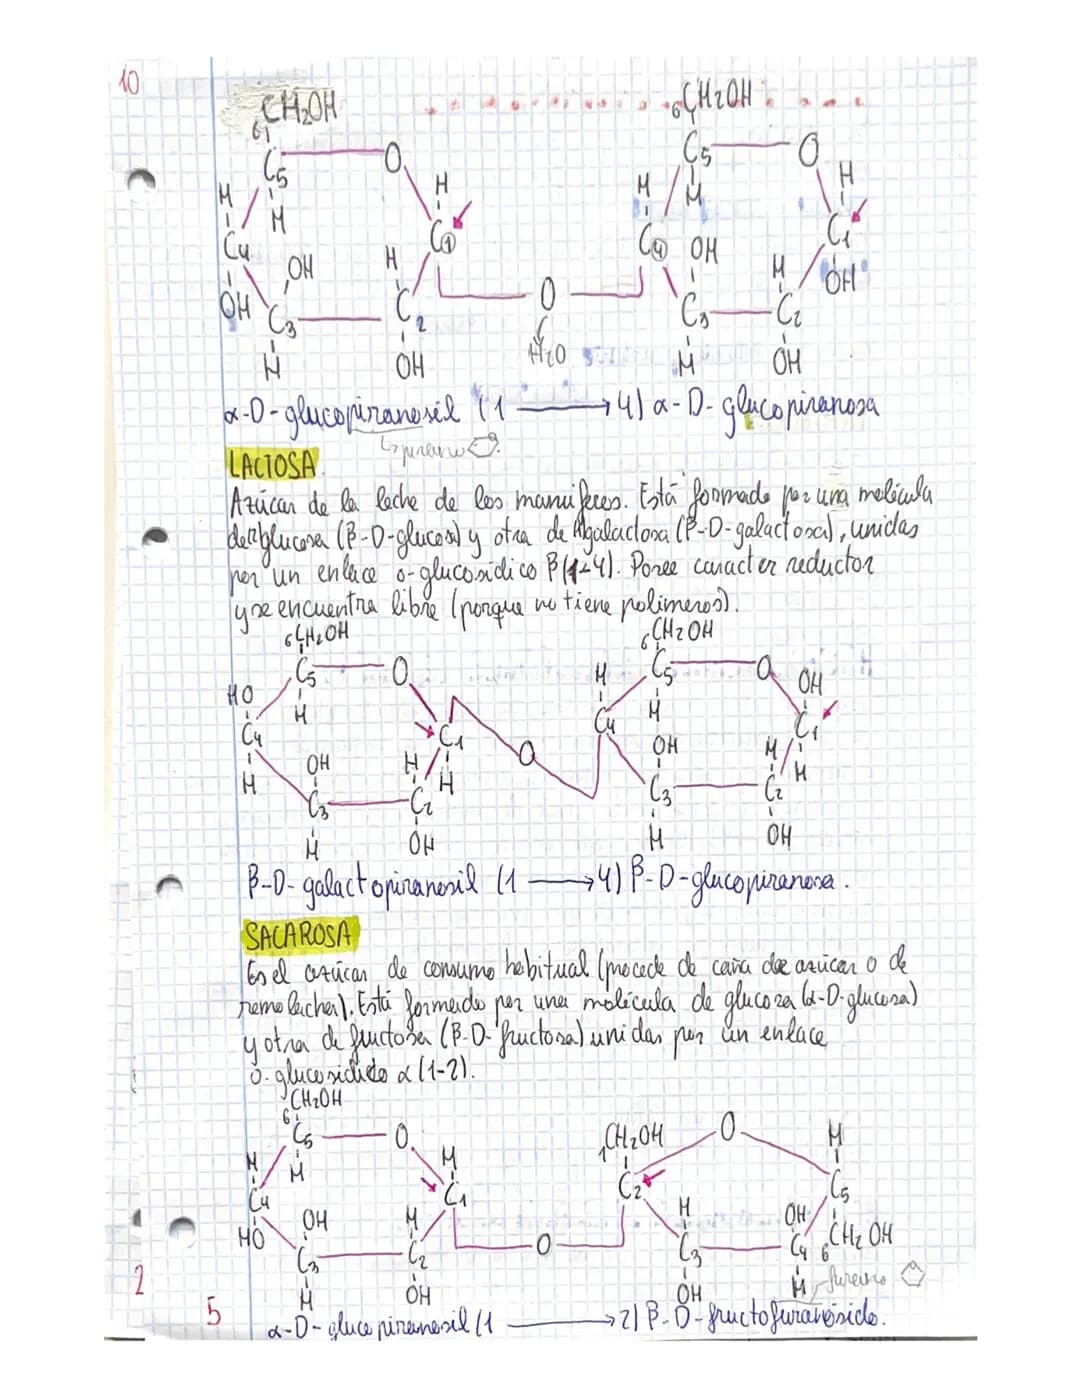 10
6 CH2OH 6 CH2OH
C5 O C5 O
H H H H
H H
C4 C1 C4 OH C1
OH H H OH
OH C3 C2 O C3 C2
H OH H2O H OH
α-D-glucopiranosil (1 → 4) α-D-glucopiranosa
↳pirano
LACTOSA.
Azúcar de la leche de los mamíferos. Está formada por una molécula
de glucosa (β-D-glucosa) y otra de galactosa (β-D-galactosa), unidas
por un enlace o-glucosídico β(1-4). Posee caracter reductor
y se encuentra libre (porque no tiene polímeros).
6 CH2OH 6 CH2OH
C5 O H C5 O OH
HO H C4 H C1
C4 C1 O OH H
H OH H H C3 C2 H
C3 C2
H OH H OH
β-D-galactopiranosil (1 → 4) β-D-glucopiranosa.
SACAROSA
Es el azúcar de consumo habitual (procede de caña de azúcar o de
remolacha). Está formada por una molécula de glucosa (α-D-glucosa)
y otra de fructosa (β-D-fructosa) unidas por un enlace
o-glucosídido α(1-2).
6 CH2OH
C5 O 1 CH2OH O H
H H H
C4 C1 C2 C5
HO OH H H OH 6 CH2OH
C3 C2 O C3 C4
H OH OH H furano
2
5
α-D-glucopiranosil (1 → 2) β-D-fructofuranósido.